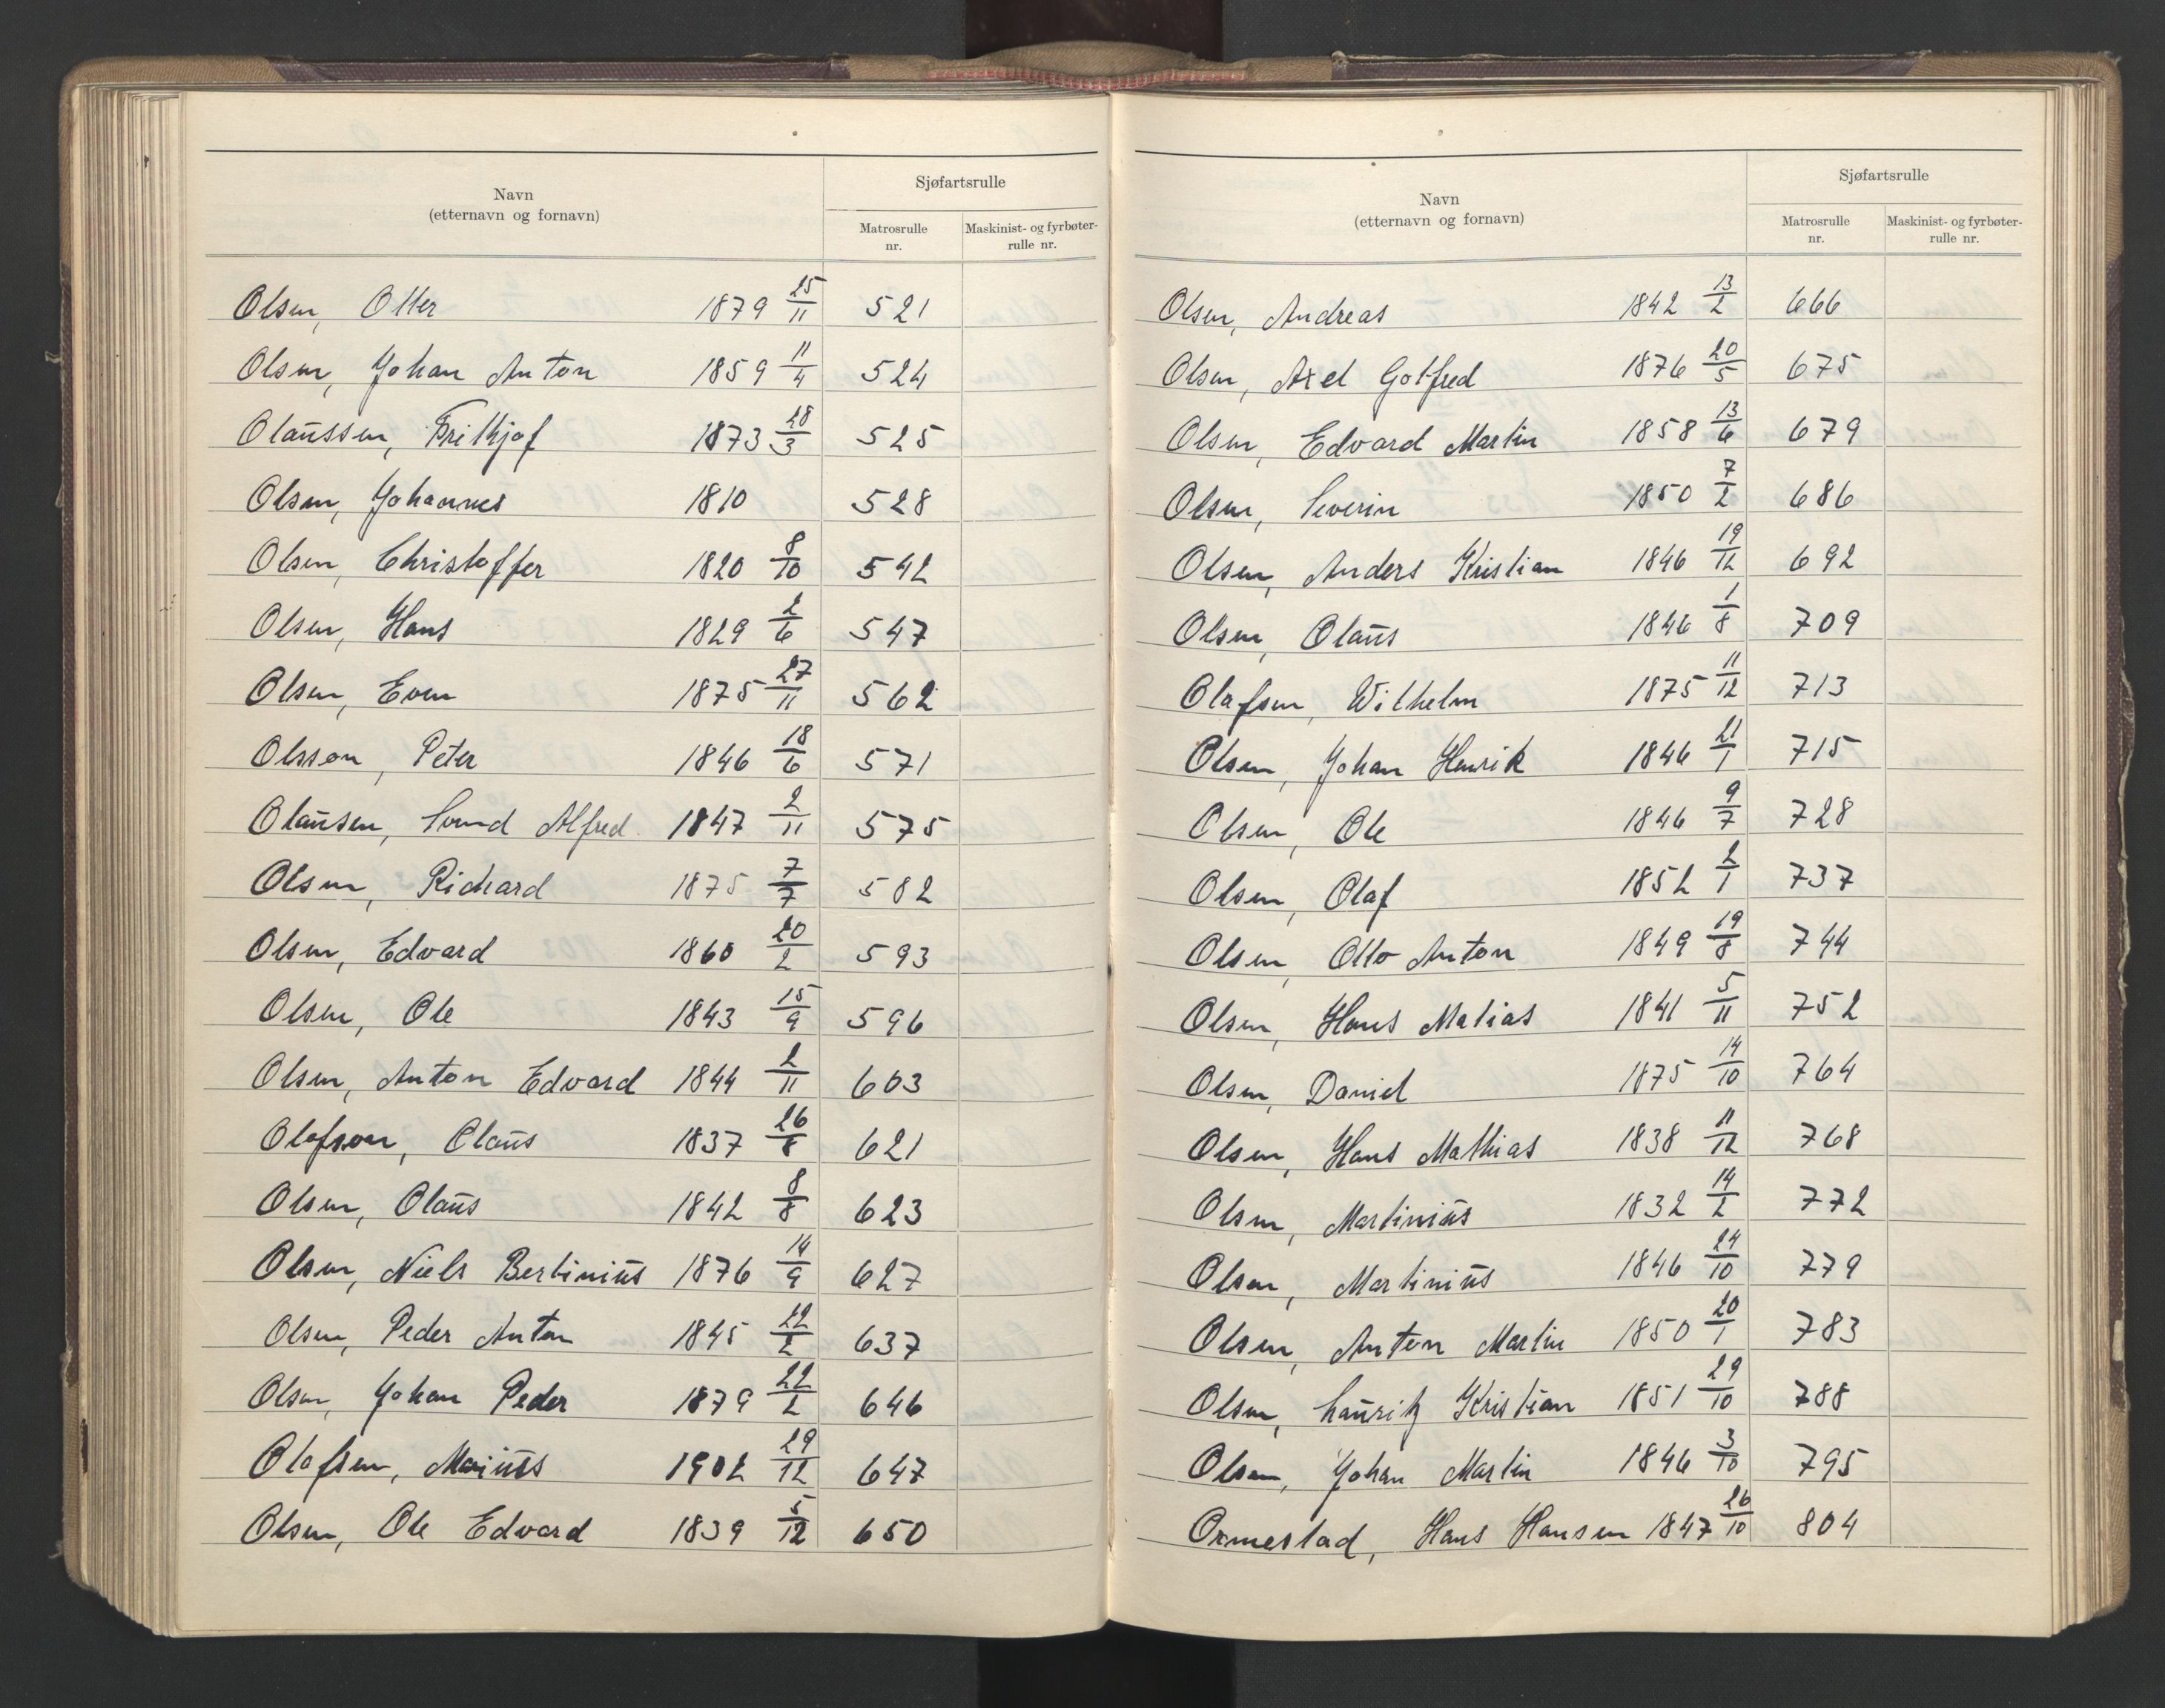 Navn
(etternavn og fornavn)
Sjøfartsrulle
Matrosrulle nr.
Maskinist- og fyrbøter-rulle nr.
Olsen, Otter 1879 25/11 521
Olsen, Johan Anton 1859 11/4 524
Olaussen, Frithjof 1873 28/3 525
Olsen, Johannes 1810 528
Olsen, Christoffer 1820 8/10 542
Olsen, Hans 1829 2/6 547
Olsen, Even 1875 27/11 562
Olsson, Peter 1846 18/6 571
Olausen, Svend Alfred 1847 2/11 575
Olsen, Richard 1875 7/7 582
Olsen, Edvard 1860 20/2 593
Olsen, Ole 1843 15/9 596
Olsen, Anton Edvard 1844 2/11 603
Olofson, Olaus 1837 26/8 621
Olsen, Olaus 1842 8/8 623
Olsen, Niels Bertinius 1876 14/9 627
Olsen, Peder Anton 1845 22/2 637
Olsen, Johan Peder 1879 22/2 646
Olofsen, Marius 1902 29/12 647
Olsen, Ole Edvard 1839 5/12 650
Navn
(etternavn og fornavn)
Sjøfartsrulle
Matrosrulle nr.
Maskinist- og fyrbøter-rulle nr.
Olsen, Andreas 1842 13/2 666
Olsen, Axel Gotfred 1876 20/5 675
Olsen, Edvard Martin 1858 13/6 679
Olsen, Severin 1850 7/2 686
Olsen, Anders Kristian 1846 19/12 692
Olsen, Olaus 1846 1/8 709
Olafsen, Wilhelm 1875 11/12 713
Olsen, Johan Henrik 1846 21/1 715
Olsen, Ole 1846 9/7 728
Olsen, Olaf 1852 2/1 737
Olsen, Otto Anton 1849 19/8 744
Olsen, Hans Matias 1841 5/11 752
Olsen, Daniel 1875 14/10 764
Olsen, Hans Mathias 1838 11/12 768
Olsen, Martinius 1832 14/2 772
Olsen, Martinius 1846 24/10 779
Olsen, Anton Martin 1850 20/1 783
Olsen, Lauritz Kristian 1851 29/10 788
Olsen, Johan Martin 1846 3/10 795
Ormestad, Hans Hansen 1847 26/10 804